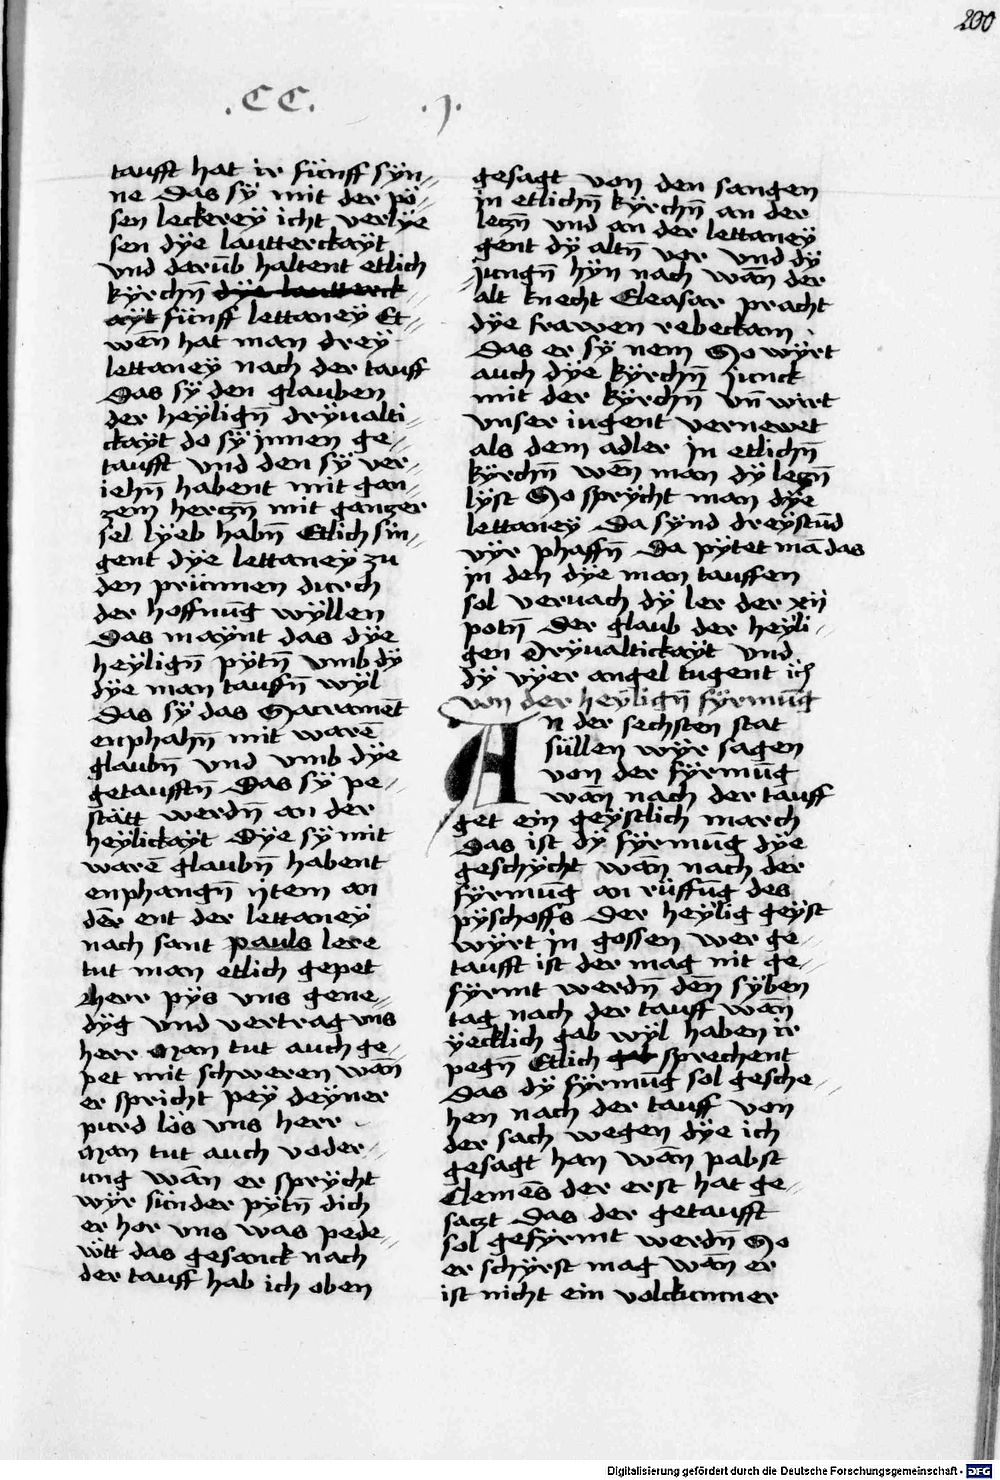 200
.CC. .j.
taufft hat ir fünff syn//
ne Das sÿ mit der pö//
sen leckereÿ icht verlÿe
sen dÿe lautterckaÿt
vnd darūb haltent etlich
kÿrchn̄ dÿe lautterck//
aÿt fünff lettaneÿ Et//
wen̄ hat man dreÿ
lettaneÿ nach der tauff
Das sÿ den glauben
der heÿlign̄ drÿualti//
ckaÿt do sÿ jnnen ge//
taufft vnd den sÿ ver//
iehn̄ habent mit gan//
zem herczn̄ mit ganzer
sel lÿeb habn̄ Etlich sin//
gent dÿe lettaneÿ zu
den prünnen durch
der hoffnūg wÿllen
Das maÿnt das dÿe
heÿlign̄ pÿtn̄ vmb dÿ
dÿe man tauffn̄ wÿl
Das sÿ das Sacramēt
enphahn̄ mit warē
glaubn̄ vnd vmb dÿe
getaufftn̄ Das sÿ pe//
stätt werdn̄ an der
heÿlickaÿt Dÿe sÿ mit
warē glaubn̄ habent
enphangn̄ ÿtem an
der ent der lettaneÿ
nach sant pauls lere
tut man etlich gepet
herr pÿs vns gene//
dÿg vnd vertrag vns
herr Man tut auch ge//
pet mit schweren wān
er spricht peÿ deÿner
purd lös vns herr
Man tut auch voder//
ung wān er sprÿcht
wÿr sünder pÿtn̄ dich
er hor vns was pede//
wtt das gesanck nach
der tauff hab ich oben
gesagt von den sangen
jn etlichn̄ kÿrchn̄ an der
leczn̄ vnd an der lettaneÿ
gent dÿ altn̄ vor vnd dÿ
jungn̄ hÿn nach wān der
alt knecht Eleasar pracht
dÿe frawen rebeckam
Das er sÿ nem So wÿrt
auch dÿe kÿrchn̄ junck
mit der kÿrchn̄ vn̄ wirt
vnser iugent vernewet
als dem adler jn etlichn̄
kÿrchn̄ wen̄ man dÿ leczn̄
lÿst So sprÿcht man dÿe
lettaneÿ Da sÿnd dreÿstūd
vÿr phaffn̄ Da pÿtet mā das
jn den dÿe man tauffen
sol veruach dÿ ler der xij
potn̄ Der glaub der heÿli//
gen drÿualtickaÿt vnd
dÿ vÿer angel tugent ich
von der heÿlign̄ fÿrmūg
An der sechsten stat
süllen wÿr sagen
von der fÿrmūg
wān nach der tauff
get ein geÿstlich march
Das ist dÿ fÿrmūg dÿe
geschÿcht wān nach der
fÿrmūg an rüffūg des
pÿschoffs Der heÿlig geÿst
wÿrt jn gossen wer ge//
taufft ist der mag nit ge//
fÿrmt werdn̄ den̄ sÿben
tag nach der tauff wān
ÿecklich gab wÿl haben ir
pegn̄ Etlich gab sprechent
Das dÿ fÿrmūg sol gesche//
hen nach der tauff von
der sach wegen dÿe ich
gesagt han wān pabst
Clemēs der erst hat ge//
sazt Das der getaufft
sol gefÿrmt werdn̄ So
er schÿrst mag wān er
ist nicht ein volckumner
Digitalisierung gefördert durch die Deutsche Forschungsgemeinschaft - DFG